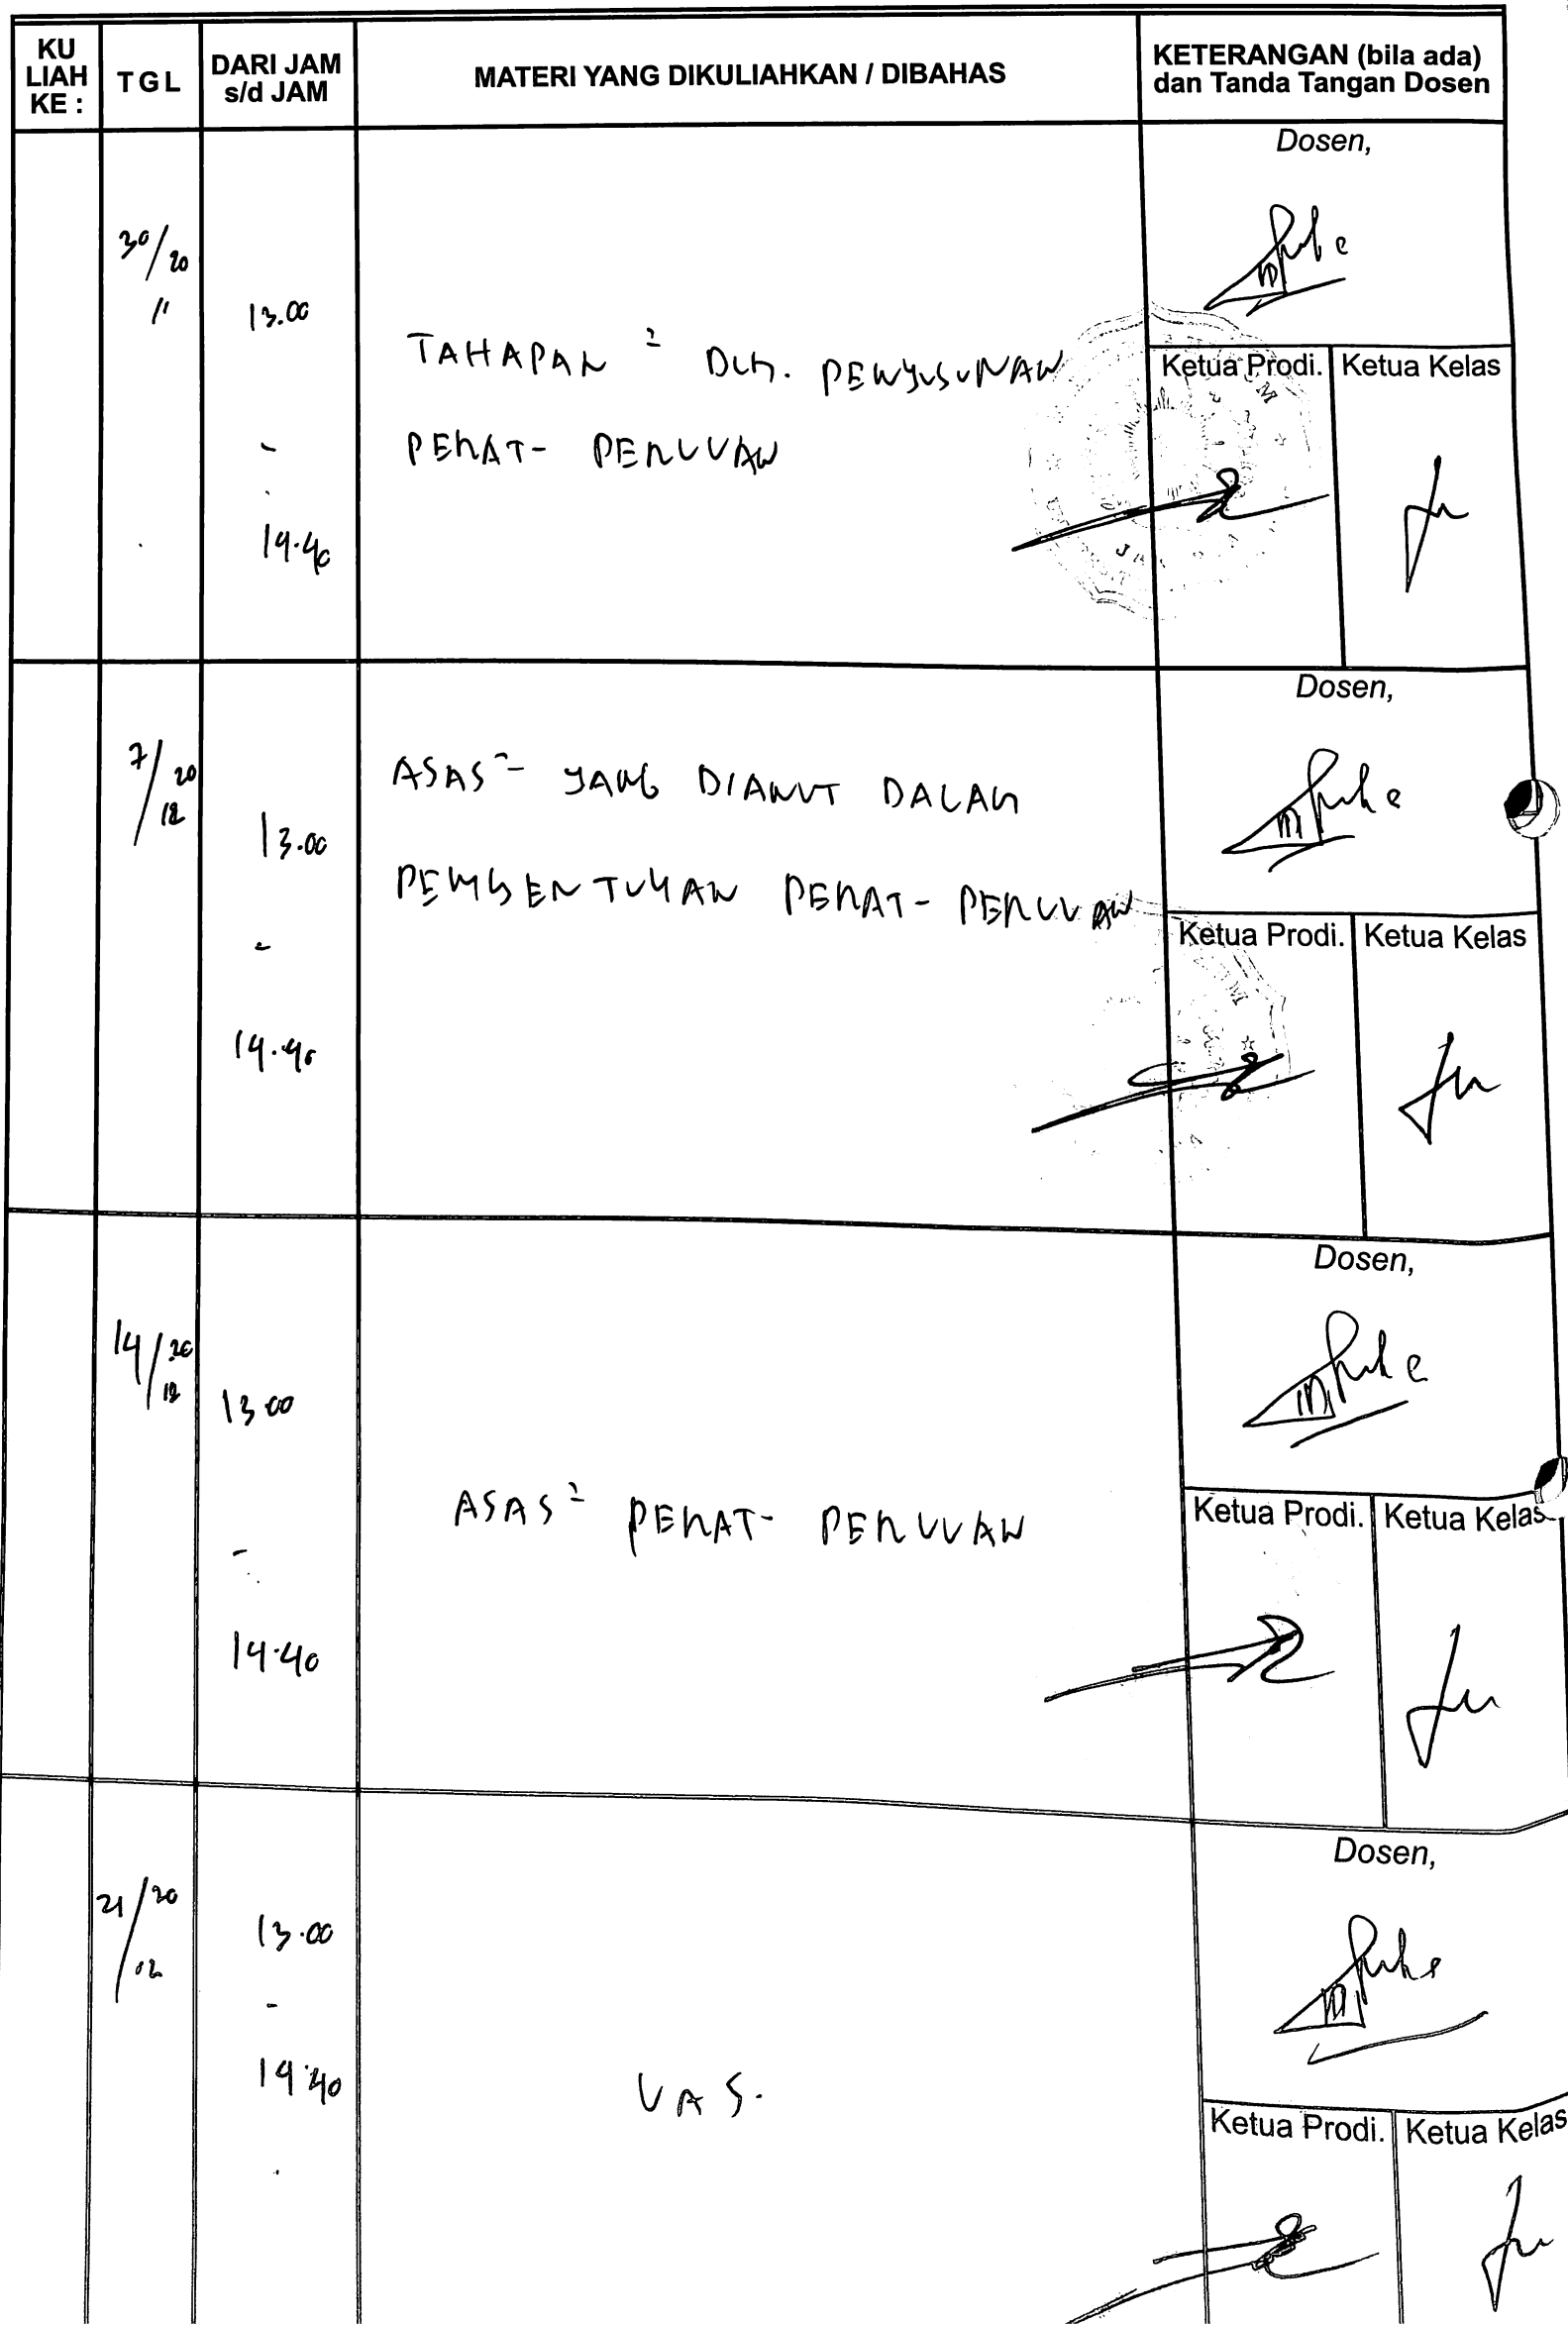 KU LIAH KE :
TGL
DARI JAM s/d JAM
MATERI YANG DIKULIAHKAN / DIBAHAS
KETERANGAN (bila ada) dan Tanda Tangan Dosen
Dosen,
30/20
11
13.00
TAHAPAN ² DLM. PENYUSUNAN
PERAT- PERUUAN
-
14.40
Ketua Prodi.
Ketua Kelas
Dosen,
7/20
12
13.00
ASAS ² YANG DIANUT DALAM
PEMBENTUKAN PERAT- PERUUAN
-
14.40
Ketua Prodi.
Ketua Kelas
Dosen,
14/20
12
13.00
ASAS ² PERAT- PERUUAN
-
14.40
Ketua Prodi.
Ketua Kelas
Dosen,
21/20
12
13.00
-
14.40
UAS.
Ketua Prodi.
Ketua Kelas